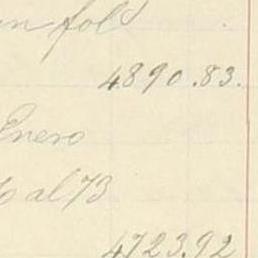 en fol
4890.83.
Enero
al 73
4723.92